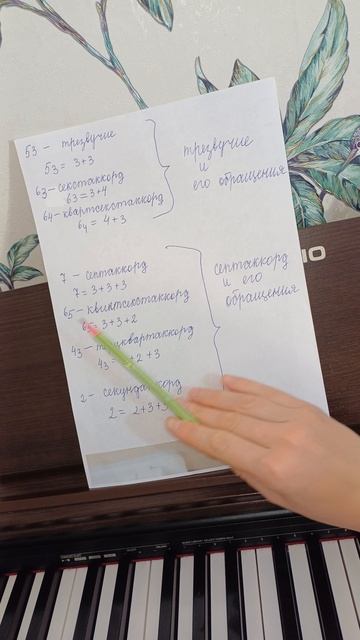 53 - трезвучие
53 = 3+3
63 - секстаккорд
63 = 3+4
64 - квартсекстаккорд
64 = 4+3
трезвучие
и
его обращения
7 - септаккорд
7 = 3+3+3
65 - квинтсекстаккорд
65 = 3+3+2
43 - аккорд
43 = +2+3
2 - секундаккорд
2 = 2+3+3
септаккорд
и его
обращения
IO